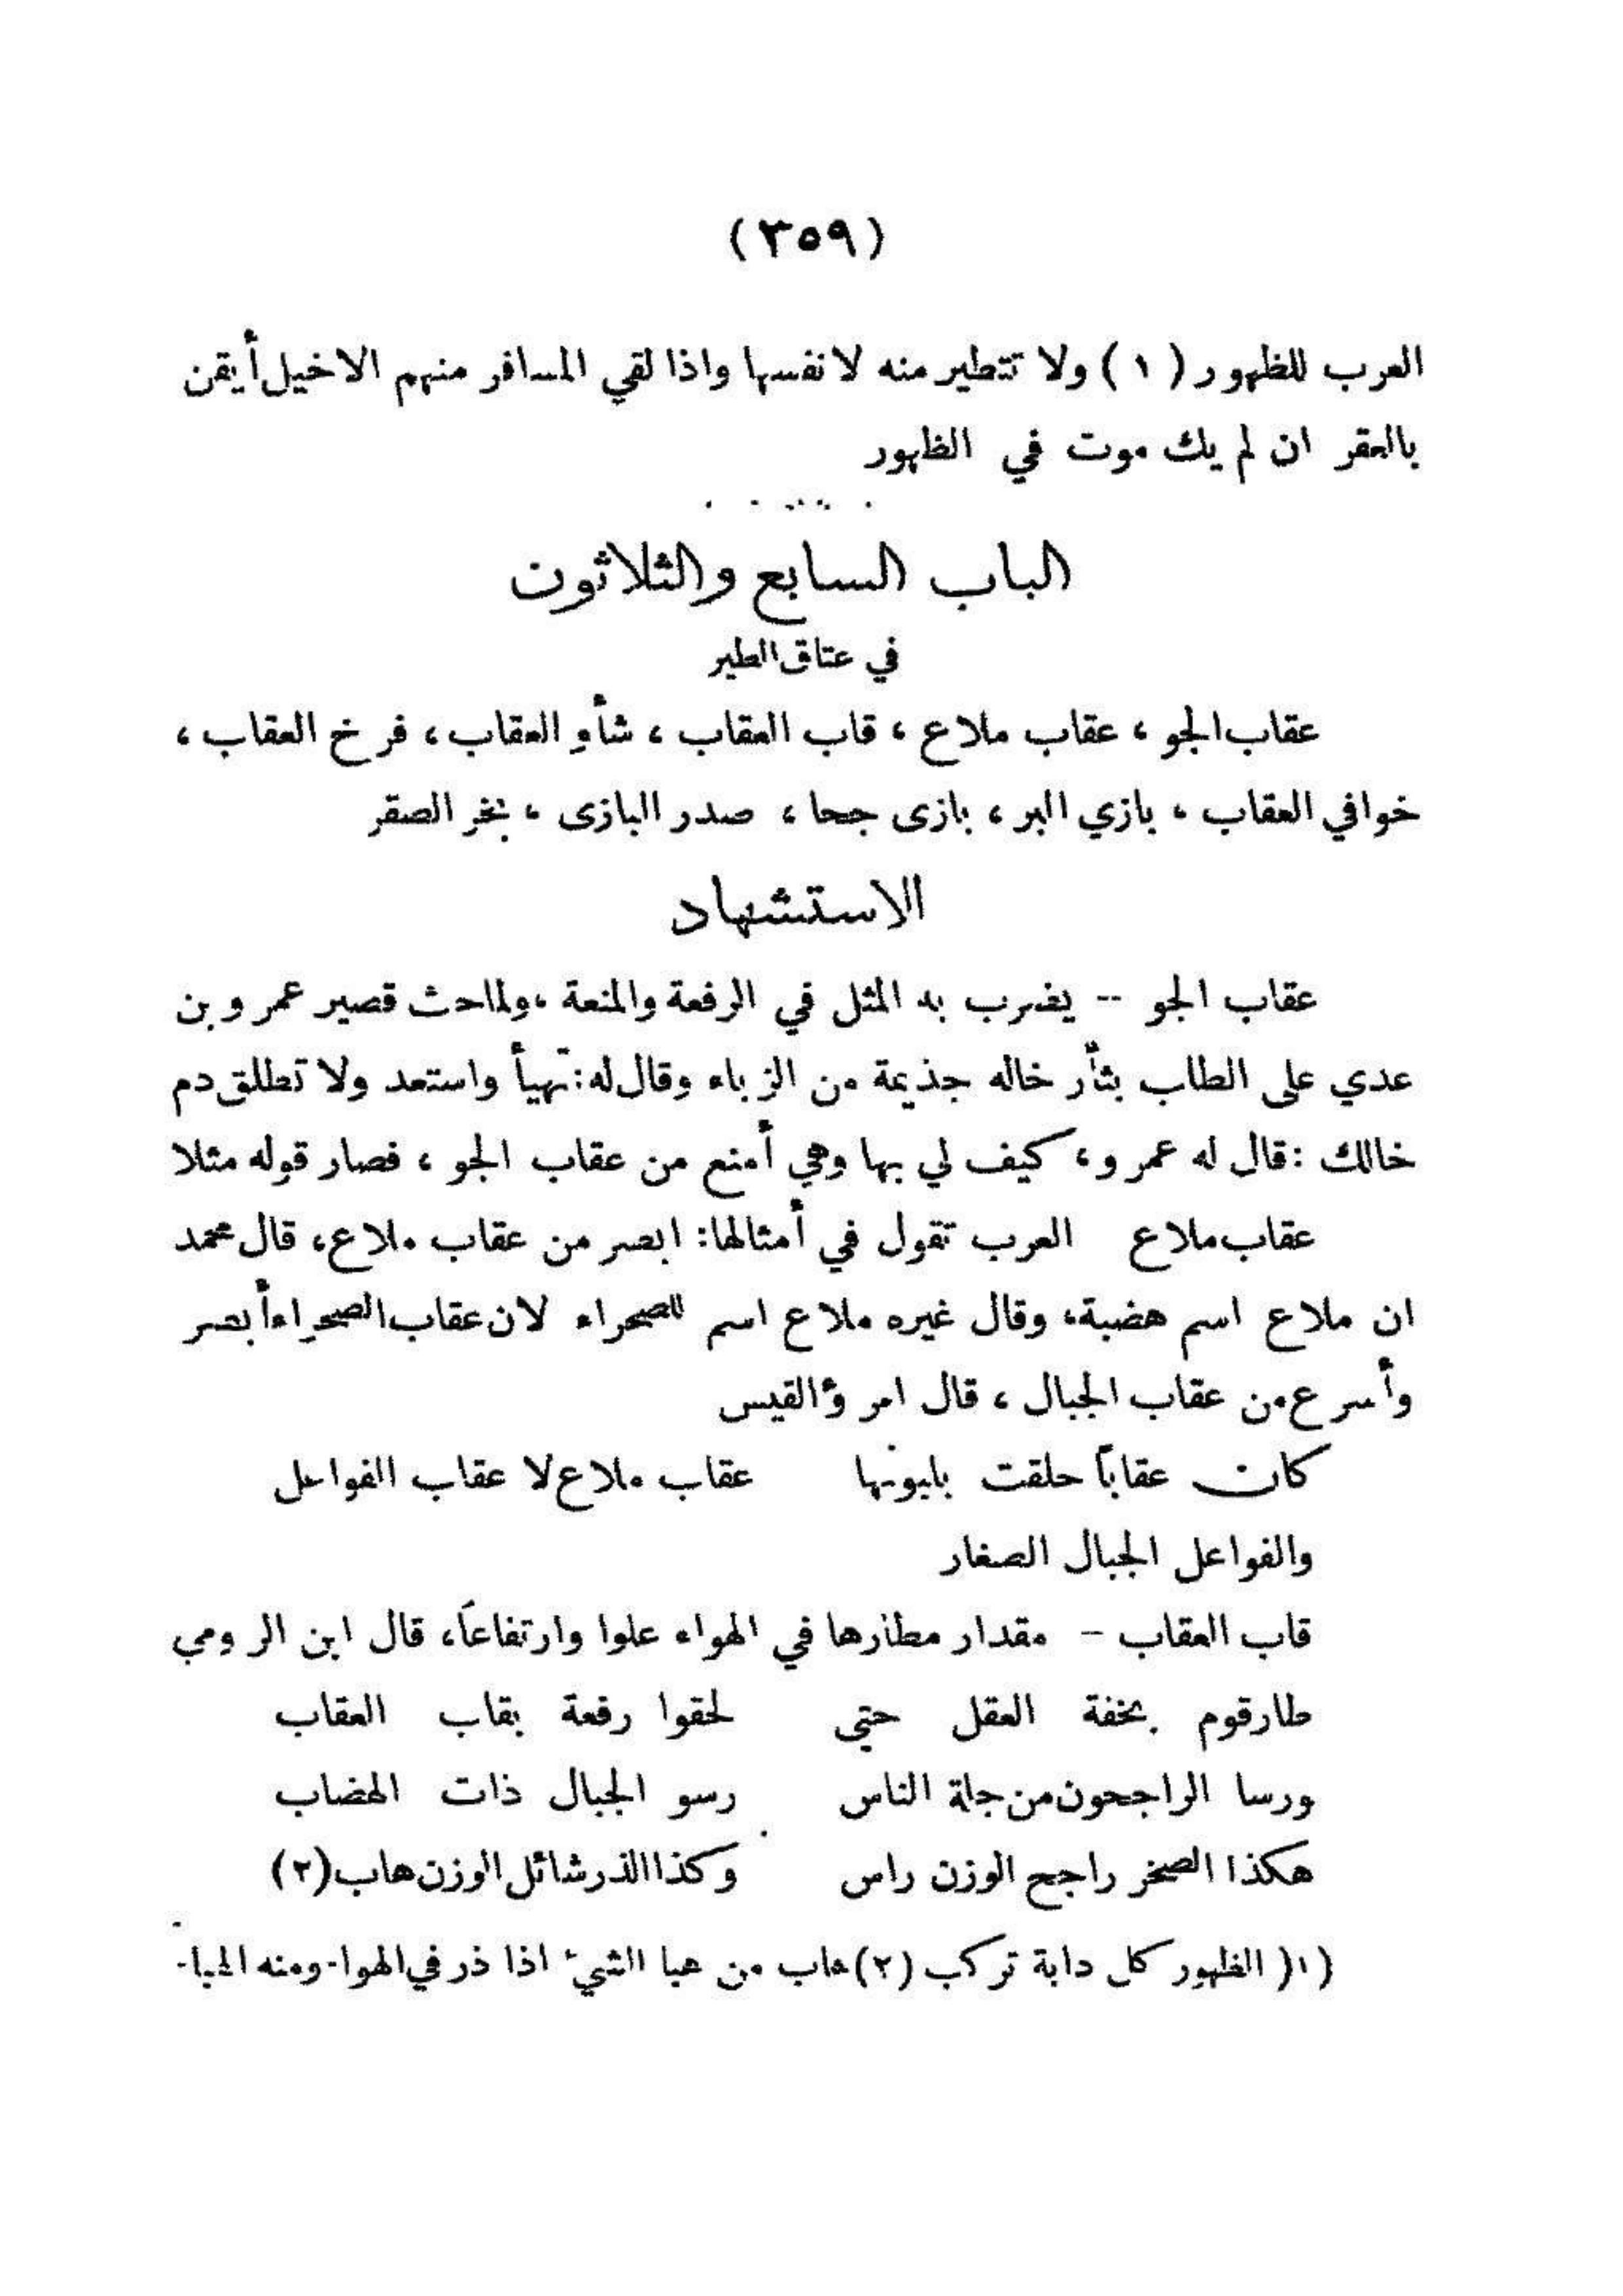 (٣٥٩)
العرب للظهور (١) ولا تتطير منه لانفسها واذا لقي المسافر منهم الاخيل أيقن
بالعقر ان لم يك موت في الظهور
الباب السابع والثلاثون
في عتاق الطير
عقاب الجو ، عقاب ملاع ، قاب العقاب ، شأو العقاب ، فرخ العقاب ،
خوافي العقاب ، بازي البر ، بازى جحا ، صدر البازى ، بخر الصقر
الاستشهاد
عقاب الجو -- يضرب به المثل في الرفعة والمنعة ، ولما حث قصير عمرو بن
عدي على الطاب بثأر خاله جذيمة من الزباء وقال له : تهيأ واستعد ولا تطلق دم
خالك : قال له عمرو ، كيف لي بها وهي أمنع من عقاب الجو ، فصار قوله مثلا
عقاب ملاع العرب تقول في أمثالها : ابصر من عقاب ملاع ، قال محمد
ان ملاع اسم هضبة ، وقال غيره ملاع اسم للصحراء لان عقاب الصحراء أبصر
وأسرع من عقاب الجبال ، قال امرؤ القيس
كان عقاباً حلقت بلبونها عقاب ملاع لا عقاب الفواعل
والفواعل الجبال الصغار
قاب العقاب - مقدار مطارها في الهواء علوا وارتفاعاً ، قال ابن الرومي
طار قوم بخفة العقل حتى لحقوا رفعة بقاب العقاب
ورسا الراجحون من جلة الناس رسو الجبال ذات الهضاب
هكذا الصخر راجح الوزن راس وكذا الذر شائل الوزن هاب (٢)
(١( الظهور كل دابة تركب (٢) هاب من هبا الشيء اذا ذر في الهوا- ومنه الهبا-